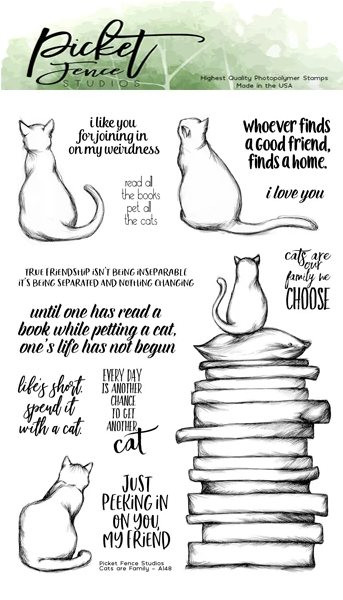 Picket
Fence
STUDIOS
Highest Quality Photopolymer Stamps
Made in the USA
i like you
for joining in
on my weirdness
whoever finds
a good friend,
finds a home.
read all
the books
pet all
the cats
i love you
cats are
our
family we
CHOOSE
TRUE FRIENDSHIP ISN'T BEING INSEPARABLE
IT'S BEING SEPARATED AND NOTHING CHANGING
until one has read a
book while petting a cat,
one's life has not begun
life's short.
spend it
with a cat.
EVERY DAY
IS ANOTHER
CHANCE
TO GET
ANOTHER
cat
JUST
PEEKING IN
ON YOU,
MY FRIEND
Picket Fence Studios
Cats are Family - A148